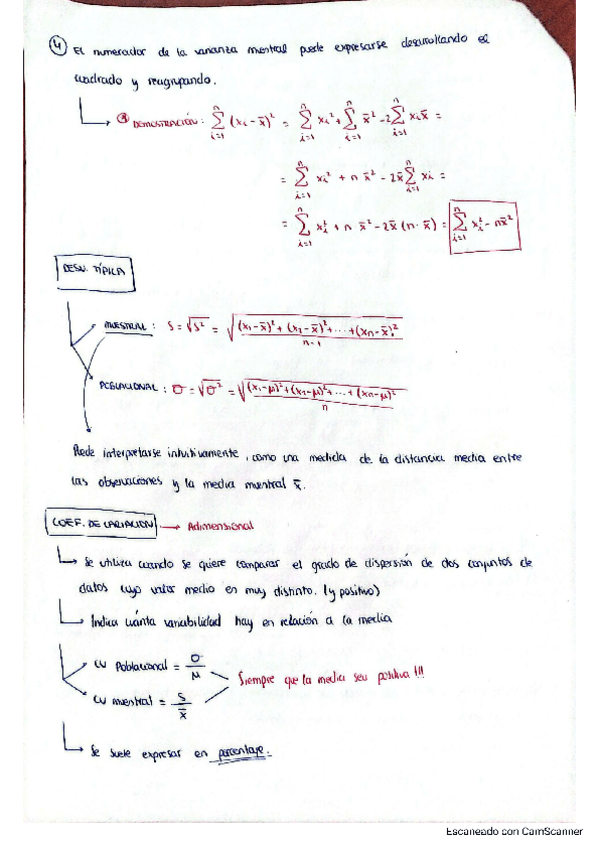 ④ El numerador de la varianza muestral puede expresarse desarrollando el
cuadrado y reagrupando.
DEMOSTRACIÓN: ∑_{i=1}^{n} (xi - x̄)² = ∑_{i=1}^{n} xi² + ∑_{i=1}^{n} x̄² - 2∑_{i=1}^{n} xi x̄ =
= ∑_{i=1}^{n} xi² + n x̄² - 2x̄ ∑_{i=1}^{n} xi =
= ∑_{i=1}^{n} xi² + n x̄² - 2x̄ (n · x̄) = ∑_{i=1}^{n} xi² - nx̄²
DESV. TÍPICA
MUESTRAL : S = √S² = √((x1 - x̄)² + (x1 - x̄)² + ... + (xn - x̄)² / n-1)
POBLACIONAL : σ = √σ² = √((x1 - μ)² + (x1 - μ)² + ... + (xn - μ)² / n)
Puede interpretarse intuitivamente, como una medida de la distancia media entre
las observaciones y la media muestral x̄.
COEF. DE VARIACIÓN → Adimensional
Se utiliza cuando se quiere comparar el grado de dispersión de dos conjuntos de
datos cuyo valor medio en muy distinto. (y positivo)
Indica cuánta variabilidad hay en relación a la media
CV Poblacional = σ/μ
Siempre que la media sea positiva!!!
CV muestral = S/x̄
Se suele expresar en porcentaje.
Escaneado con CamScanner